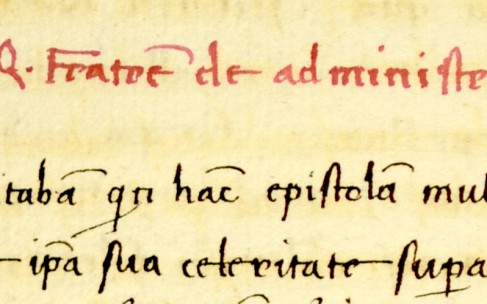 Q. Fratrē de administ
tabā qn hāc epistolā mul
ip̄a sua celeritate supa